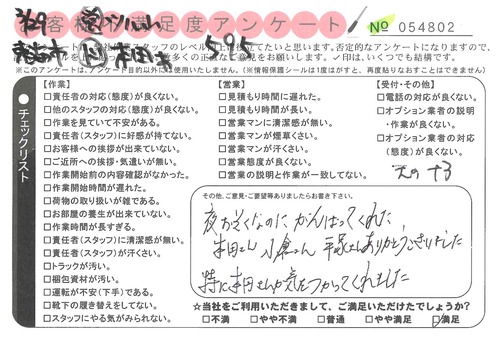 お客様満足度アンケート
No 054802
※このアンケートは、アンケート目的以外には使用いたしません。(※情報保護シールは1度はがすと、再度貼りなおすことはできません)
チェックリスト
【作業】
□責任者の対応(態度)が良くない。
□他のスタッフの対応(態度)が良くない。
□作業を見ていて不安がある。
□責任者(スタッフ)に好感が持てない。
□お客様への挨拶が出来ていない。
□ご近所への挨拶・気遣いが無い。
□作業開始前の内容確認がなかった。
□作業開始時間が遅れた。
□荷物の取り扱いが雑である。
□お部屋の養生が出来ていない。
□作業時間が長すぎる。
□責任者(スタッフ)に清潔感が無い。
□責任者(スタッフ)が汗くさい。
□トラックが汚い。
□梱包資材が汚い。
□運転が不安(下手)である。
□靴下の履き替えをしてない。
□スタッフにやる気がみられない。
【営業】
□見積もり時間に遅れた。
□見積もり時間が長い。
□営業マンに清潔感が無い。
□営業マンが煙草くさい。
□営業マンが汗くさい。
□営業態度が良くない。
□営業の説明と作業が一致してない。
【受付・その他】
□電話の対応が良くない。
□オプション業者の説明
・作業が良くない。
□オプション業者の対応
(態度)が良くない。
その他、ご意見・ご要望等ありましたらお書き下さい。
夜おそくなのにがんばってくれた
本田さん 小倉さん 平塚さんありがとうございました
特に本田さんが気をつかってくれました
☆当社をご利用いただきまして、ご満足いただけたでしょうか?
□不満 □やや不満 □普通 □やや満足 □満足